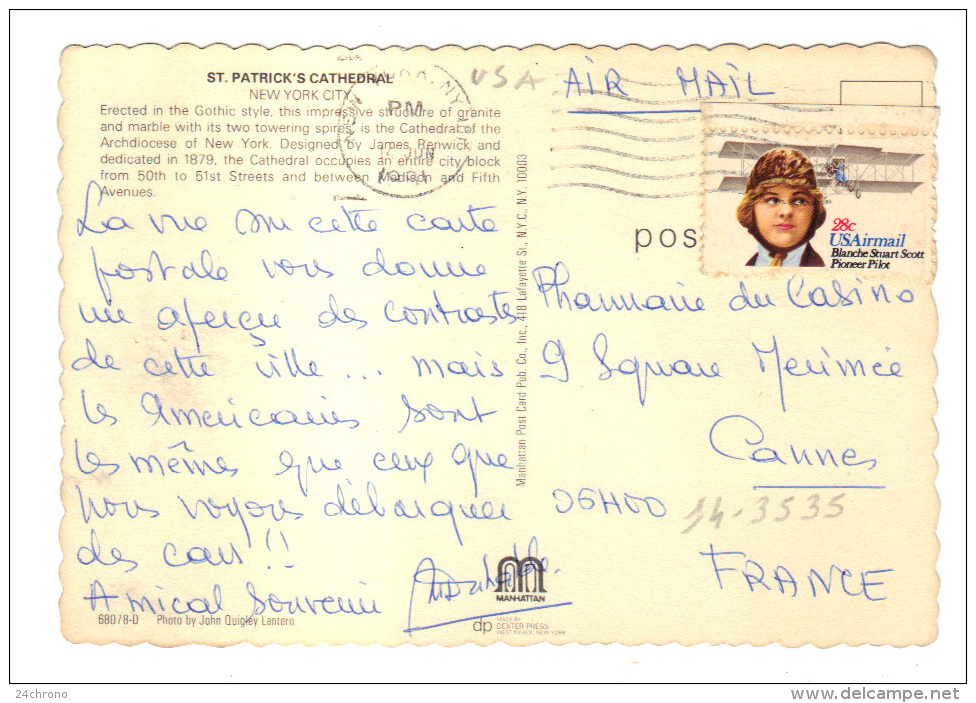 ST. PATRICK'S CATHEDRAL
NEW YORK CITY
Erected in the Gothic style, this impressive structure of granite
and marble with its two towering spires, is the Cathedral of the
Archdiocese of New York. Designed by James Renwick and
dedicated in 1879, the Cathedral occupies an entire city block
from 50th to 51st Streets and between Madison and Fifth
Avenues.
La vue sur cette carte
postale vous donne
un aperçu des contrastes
de cette ville... mais
les Américains sont
les mêmes que ceux que
nous voyons débarquer
des cars!!
Amical Souvenir
68078-D Photo by John Quigley Lantero
Manhattan Post Card Pub. Co., Inc., 418 Lafayette St., N.Y.C. N.Y. 10003
MANHATTAN
dp
MADE BY
DEXTER PRESS
WEST NYACK, NEW YORK
USA
AIR MAIL
PM
JUN
NY
pos
28c
USAirmail
Blanche Stuart Scott
Pioneer Pilot
Pharmacie du Casino
9 Square Merimée
Cannes
06400
14-3535
FRANCE
24chrono
delcampe.net